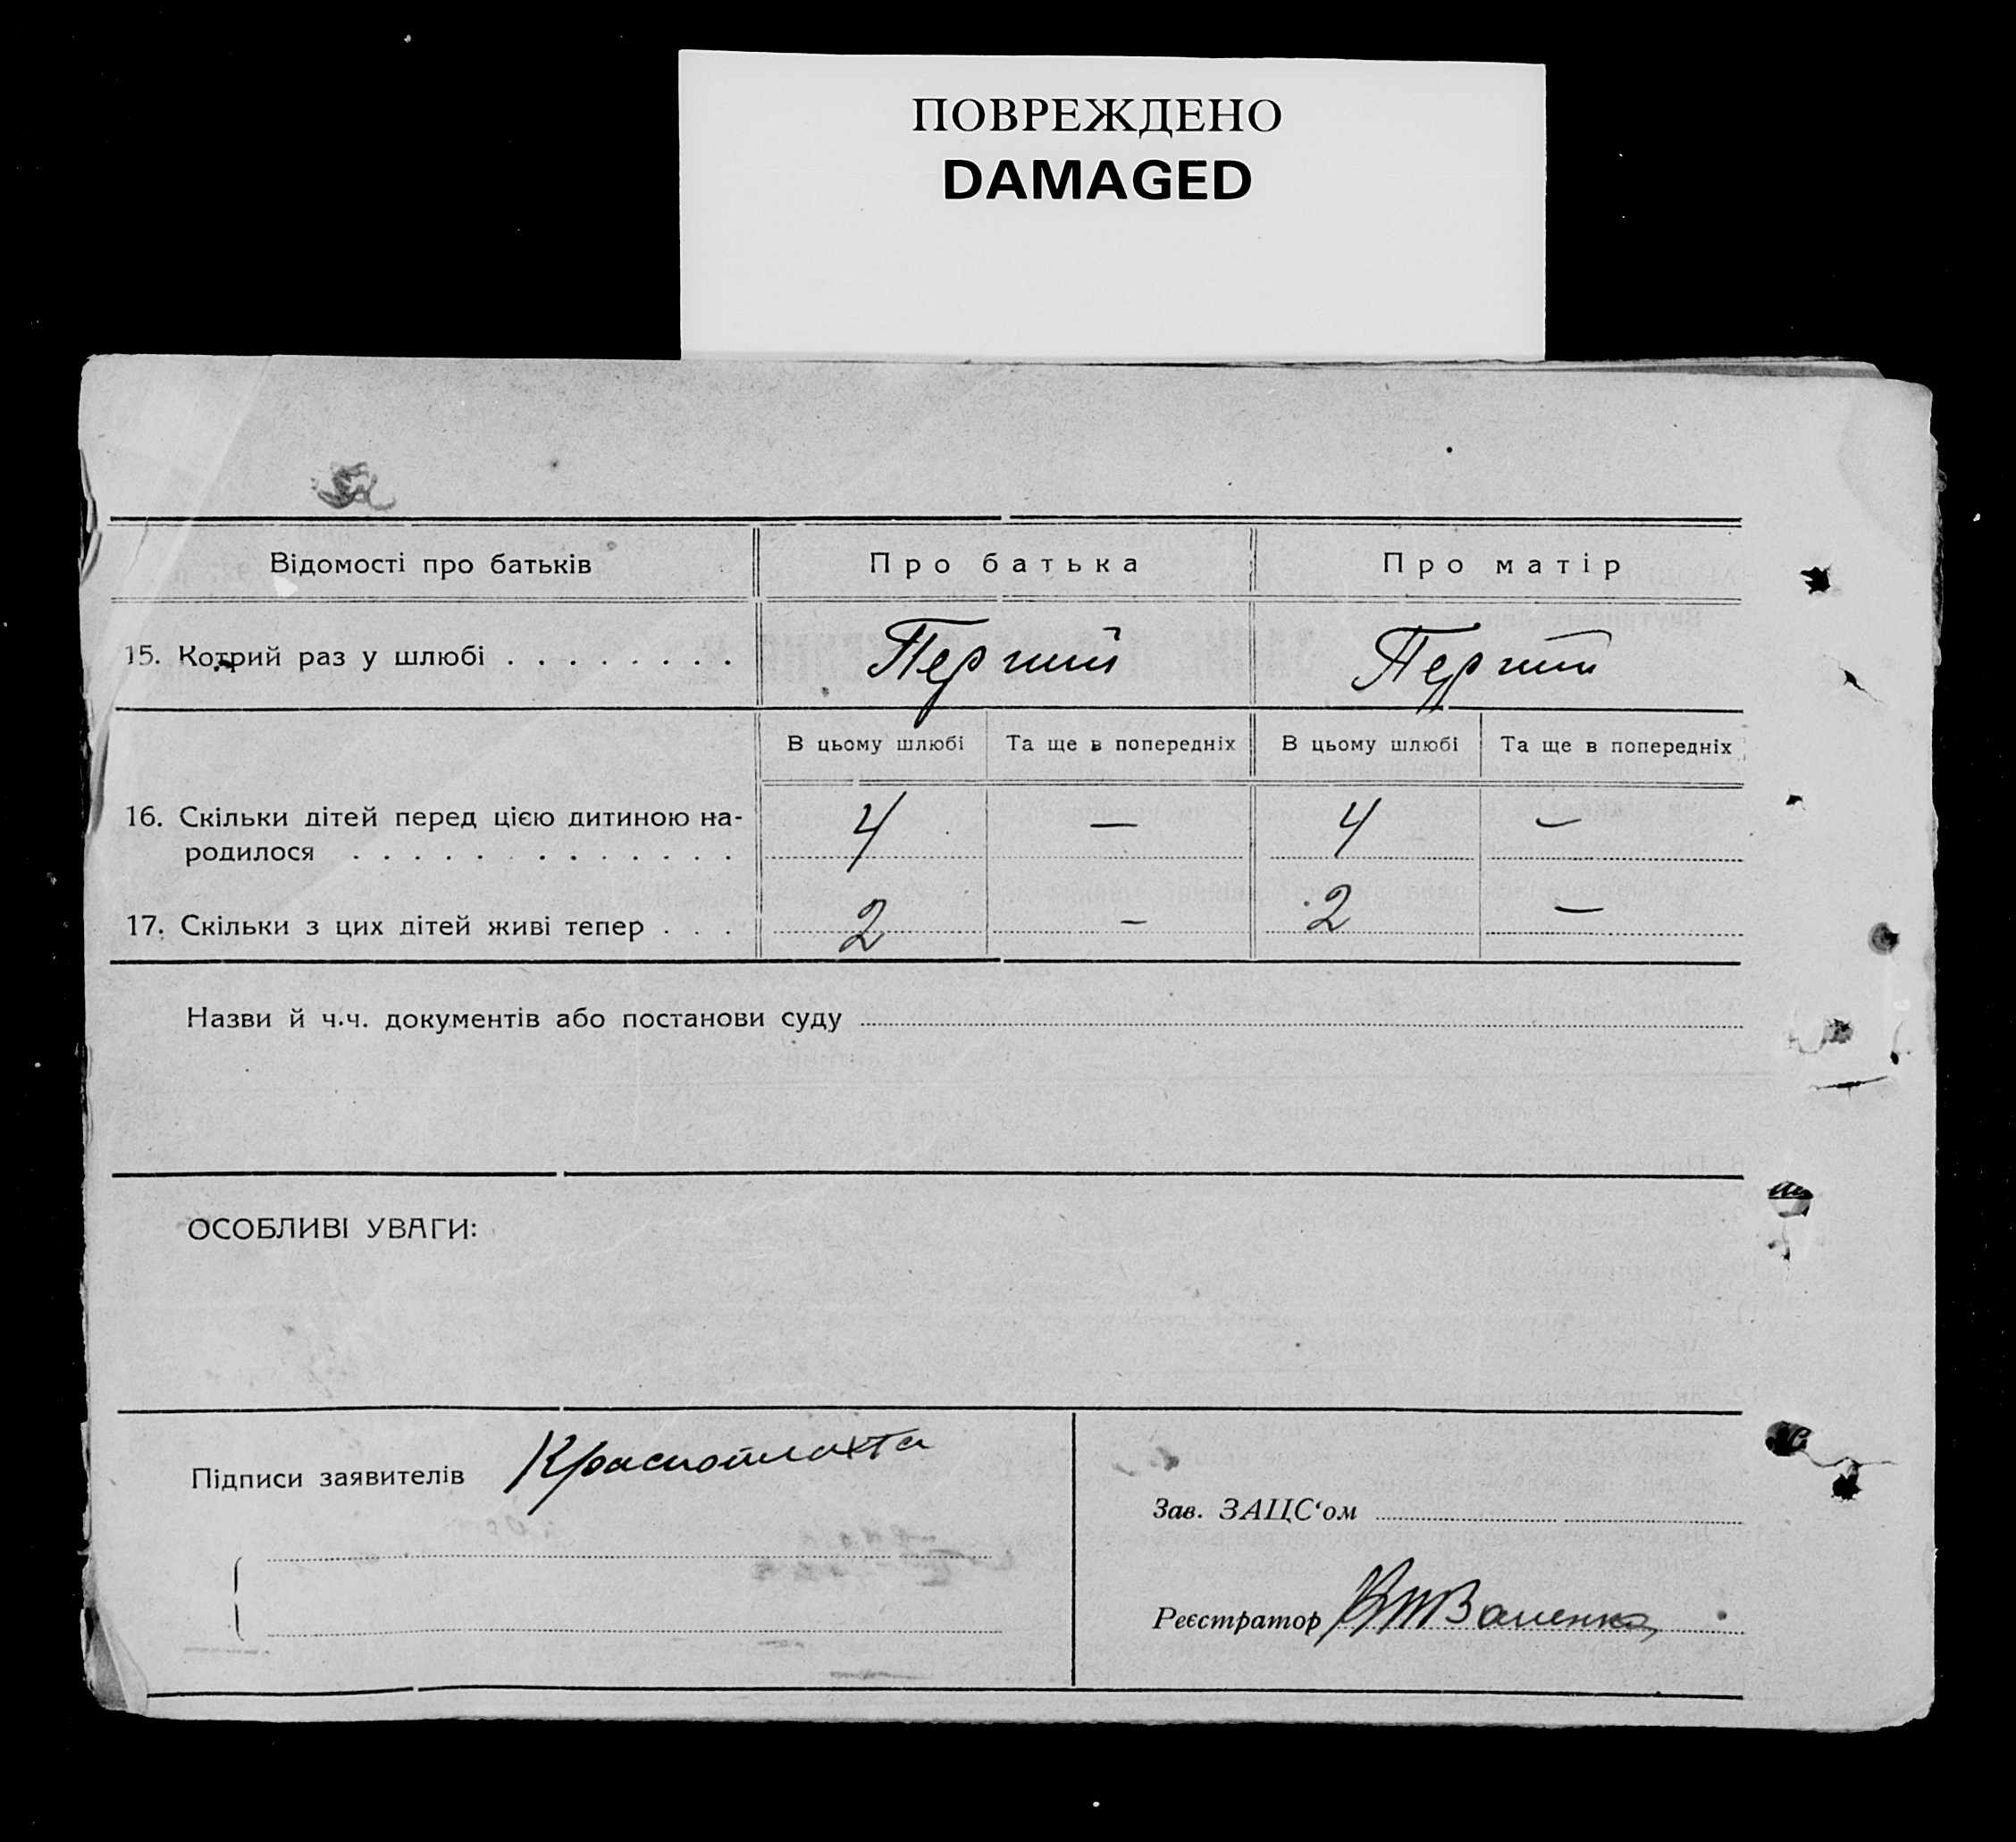 ПОВРЕЖДЕНО
DAMAGED
Відомості про батьків
Про батька
Про матір
15. Котрий раз у шлюбі . . . . . . . .
Перший
Перший
В цьому шлюбі
Та ще в попередніх
В цьому шлюбі
Та ще в попередніх
16. Скільки дітей перед цією дитиною на-
родилося . . . . . . . . . . . . .
4
—
4
—
17. Скільки з цих дітей живі тепер . . .
2
—
2
—
Назви й ч.ч. документів або постанови суду
ОСОБЛИВІ УВАГИ:
Підписи заявителів
Красноплахта
Зав. ЗАЦС‘ом
Реєстратор